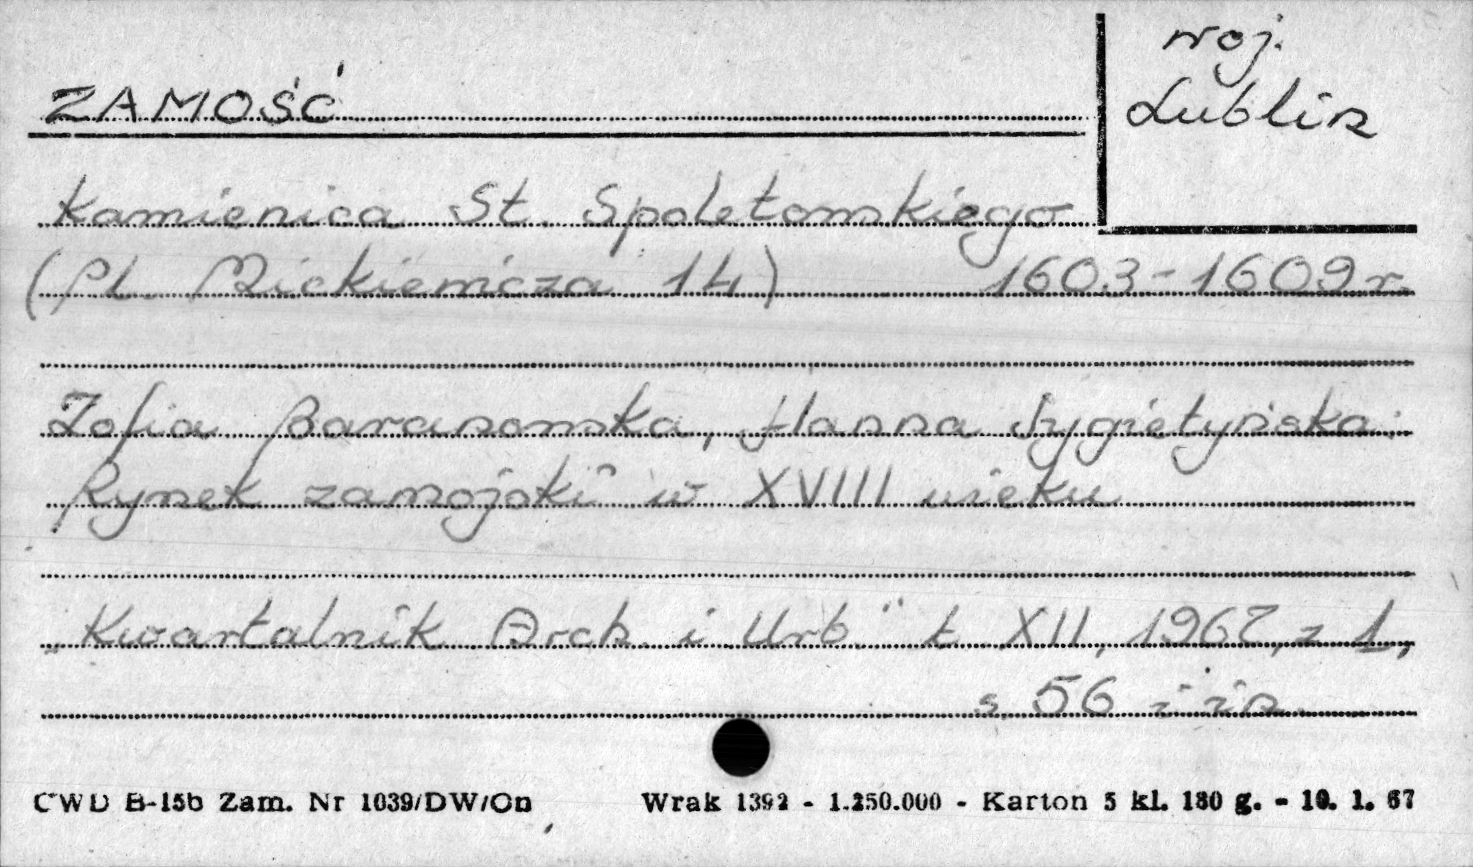 woj.
Lublin
ZAMOŚĆ
Kamienica St. Spoletowskiego
(Pl. Mickiewicza 14) 1603-1609 r.
Zofia Baranowska, Hanna Sygietyńska:
Rynek zamojski w XVIII wieku
„Kwartalnik Arch. i Urb." t. XII, 1967, z 1,
s. 56 i in.
CWD B-15b Zam. Nr 1039/DW/On Wrak 1392 - 1.250.000 - Karton 5 kl. 180 g. - 10. 1. 67